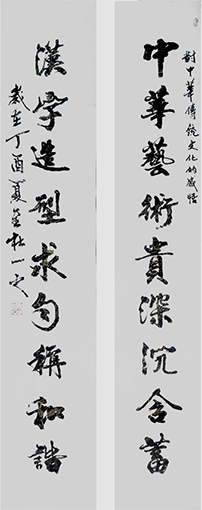 對中華傳統文化的感悟
中華藝術貴深沉含蓄
漢字造型求勻稱和諧
歲在丁酉夏至杜一文